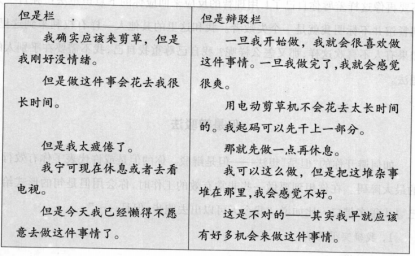 但是栏
但是辩驳栏
我确实应该来剪草，但是
我刚好没情绪。
但是做这件事会花去我很
长时间。
但是我太疲倦了。
我宁可现在休息或者去看
电视。
但是今天我已经懒得不愿
意去做这件事情了。
一旦我开始做，我就会很喜欢做
这件事情。一旦我做完了，我就会感觉
很爽。
用电动剪草机不会花去太长时间
的。我起码可以先干上一部分。
那就先做一点再休息。
我可以这么做，但是把这堆杂事
堆在那里，我会感觉不好。
这是不对的——其实我早就应该
有好多机会来做这件事情。